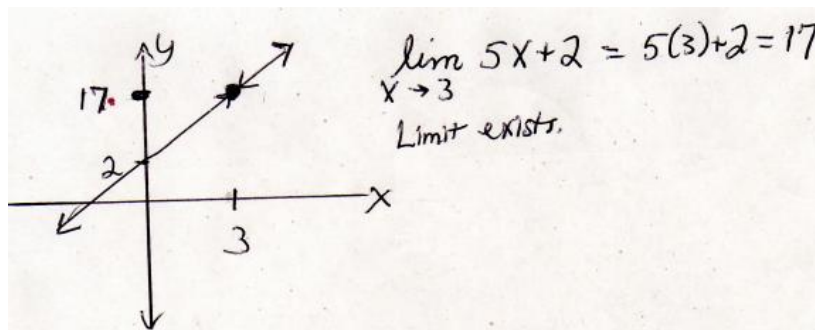 y
17.
2
x
3
lim 5x+2 = 5(3)+2 = 17
x → 3
Limit exists.